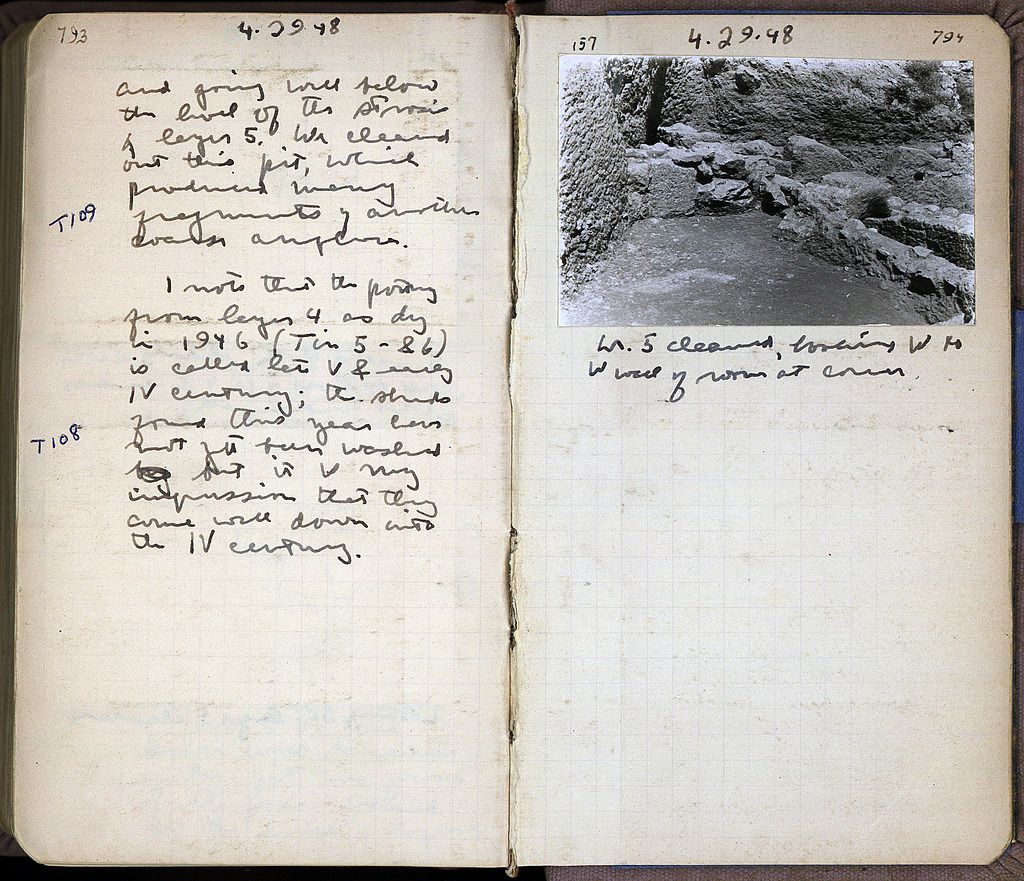 793
4.29.48
and going well below
the level of the stroses
of layer 5. We cleaned
out this pit, which
produced many
T109
fragments of another
coarse amphora.
I note that the pottery
from layer 4 as dug
in 1946 (Tin 5-86)
is called late V & early
IV century; the sherds
found this year have
T108
not yet been washed
but it is my
impression that they
come well down into
the IV century.
157
4.29.48
794
Lr. 5 cleaned, looking W to
W wall of room at corner.